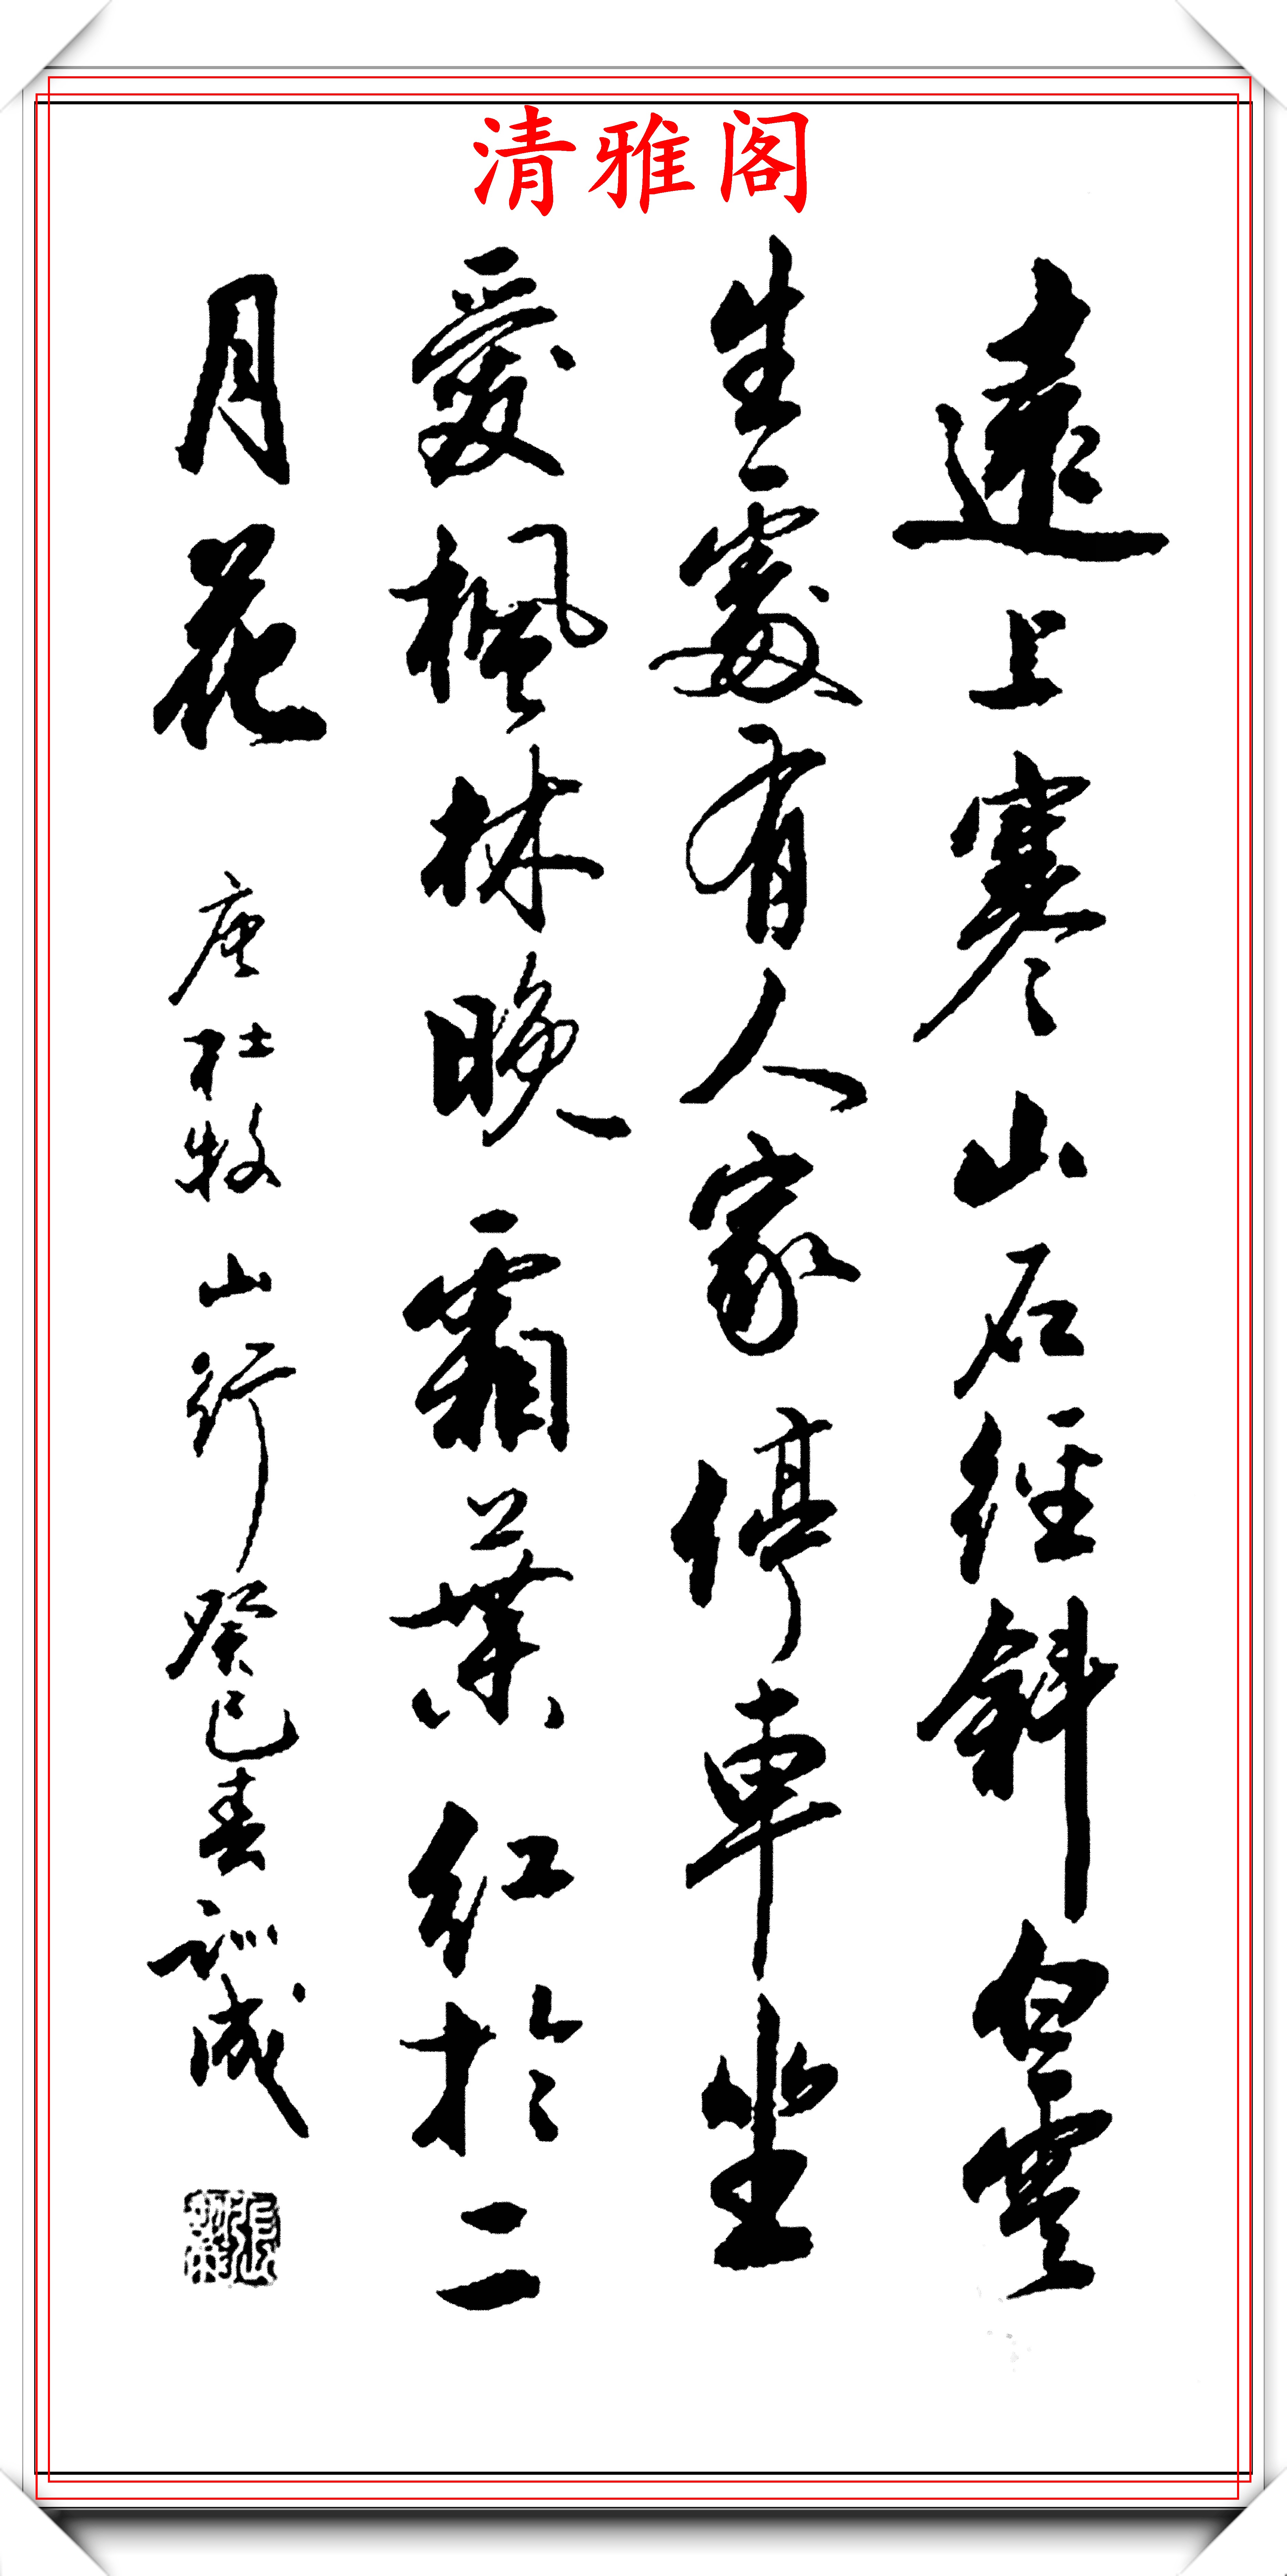 清雅阁
遠上寒山石径斜白雲
生處有人家停車坐
愛楓林晚霜葉红於二
月花
唐杜牧山行癸巳春訓成